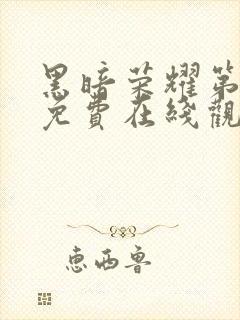 黑暗荣耀第
免費在綫觀
惠西鲁